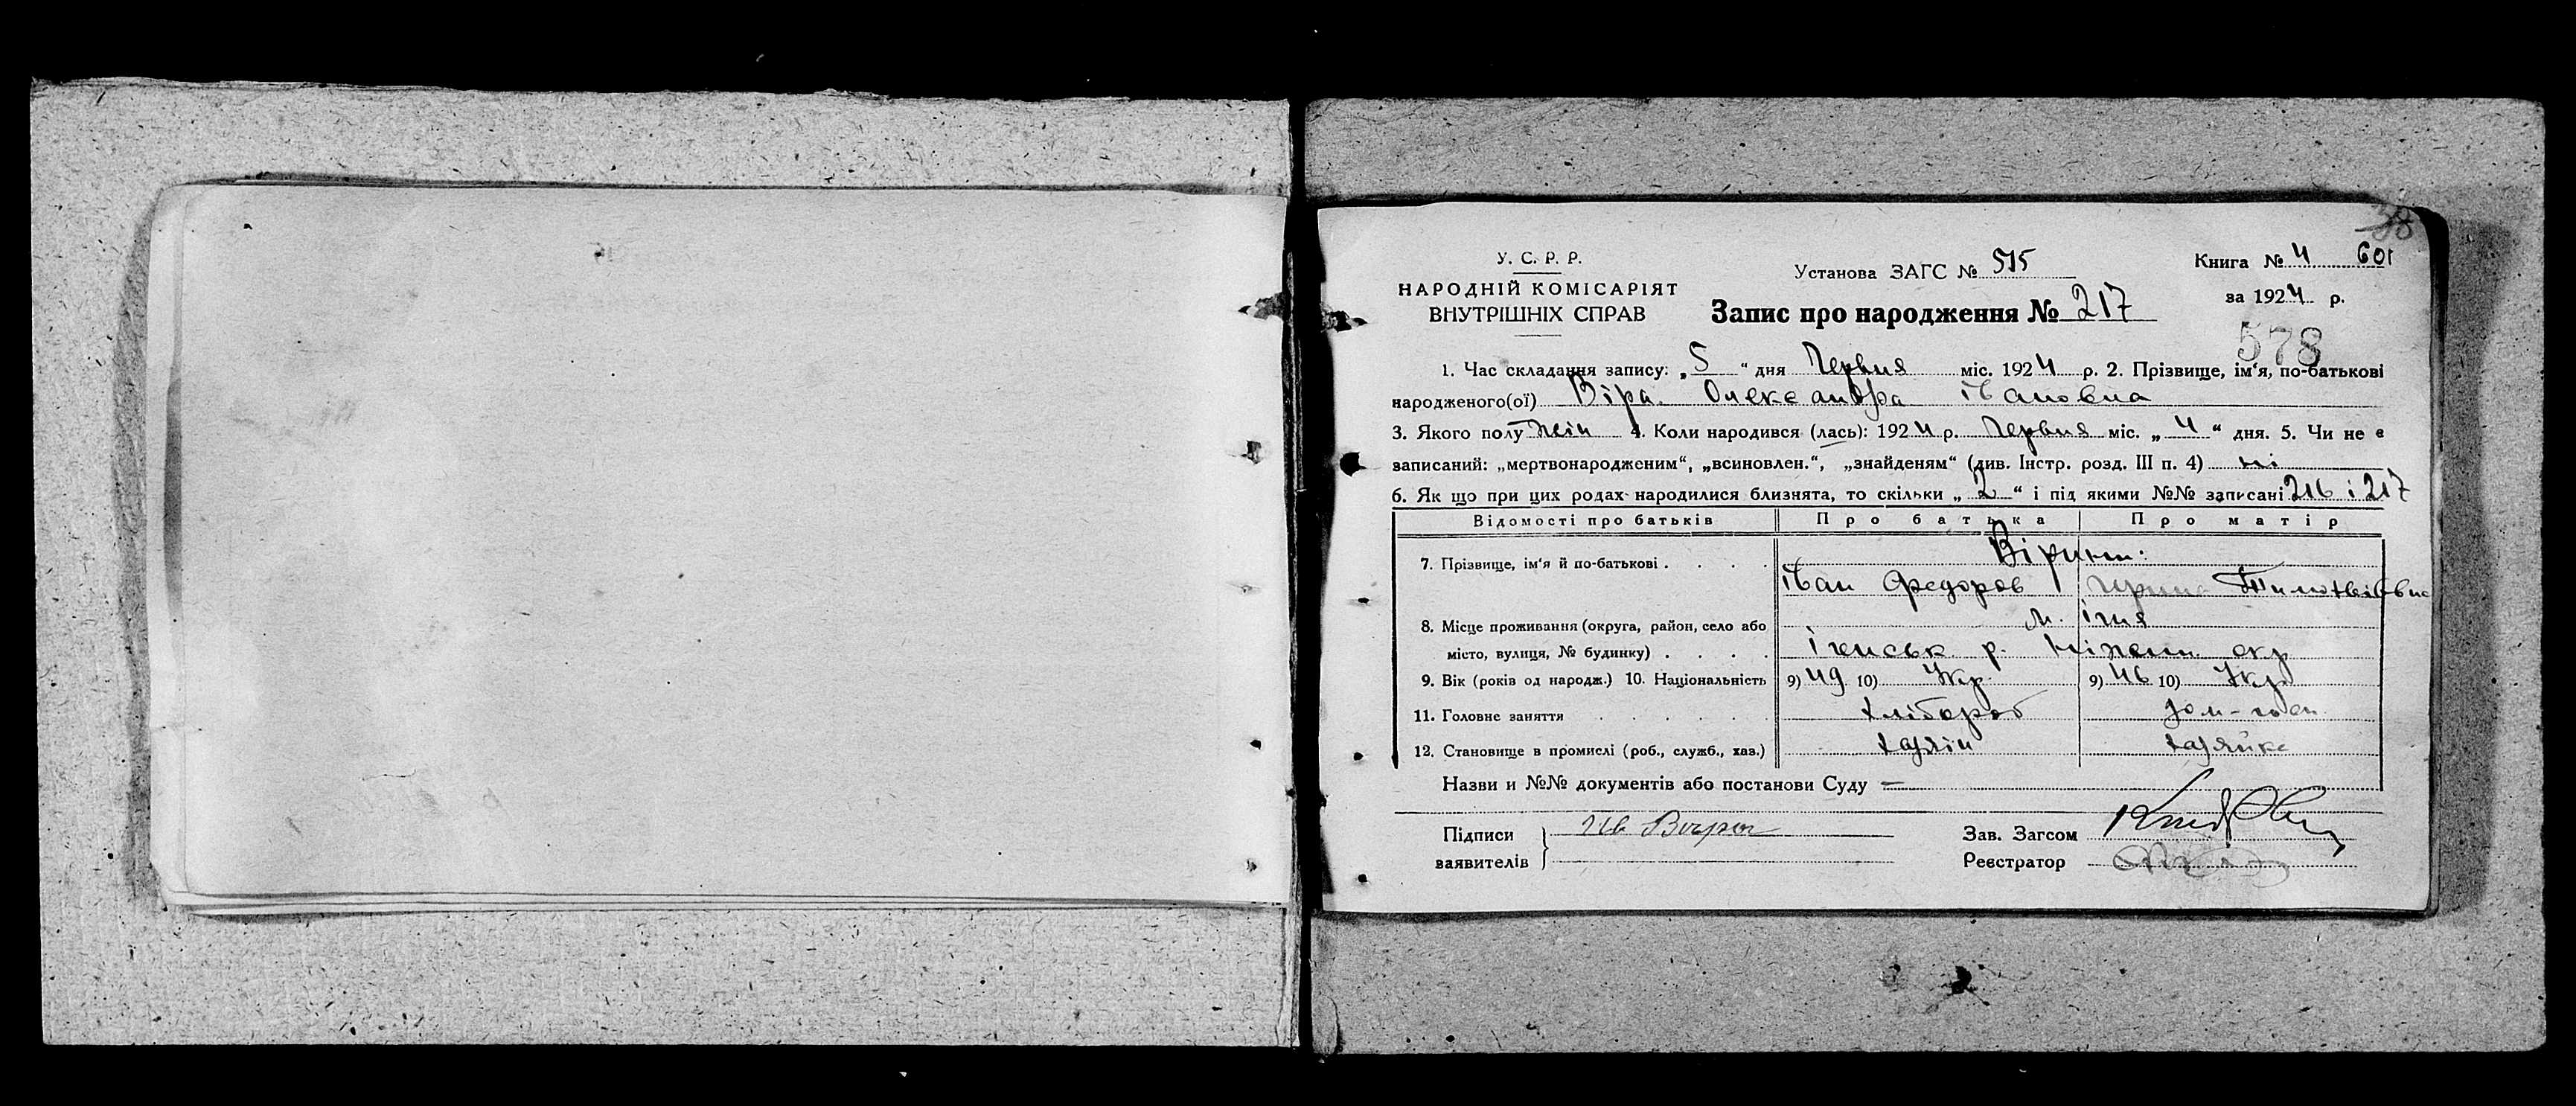 У. С. Р. Р.
НАРОДНІЙ КОМІСАРІЯТ
ВНУТРІШНІХ СПРАВ
Установа ЗАГС № 515
Книга № 4 601
за 1924 р.
Запис про народження № 217
578
1. Час складання запису: „5“ дня Червня міс. 1924 р. 2. Прізвище, ім'я, по-батькові
народженого(ої) Віра Олександра Івановна
3. Якого полу жін 4. Коли народився (лась): 1924 р. Червня міс. „4“ дня. 5. Чи не є
записаний: „мертвонародженим“, „всиновлен.“, „знайденям“ (див. Інстр. розд. III п. 4) ні
6. Як що при цих родах народилися близнята, то скільки „2“ і під якими №№ записані 216 і 217
Відомості про батьків Про батька Про матір
7. Прізвище, ім'я й по-батькові . . . .
Іван Федоров
8. Місце проживання (округа, район, село або м. Ічня
місто, вулиця, № будинку) . . . . Іченськ р. Ніжен. окр
9. Вік (років од народж.) 10. Національність 9) 49 10) Укр. 9) 46 10) Укр.
11. Головне заняття . . . . . хлібороб дом-госп.
12. Становище в промислі (роб., служб., хаз.) хазяїн хазяйка
Назви и №№ документів або постанови Суду —
Підписи
заявителів
Зав. Загсом
Реєстратор